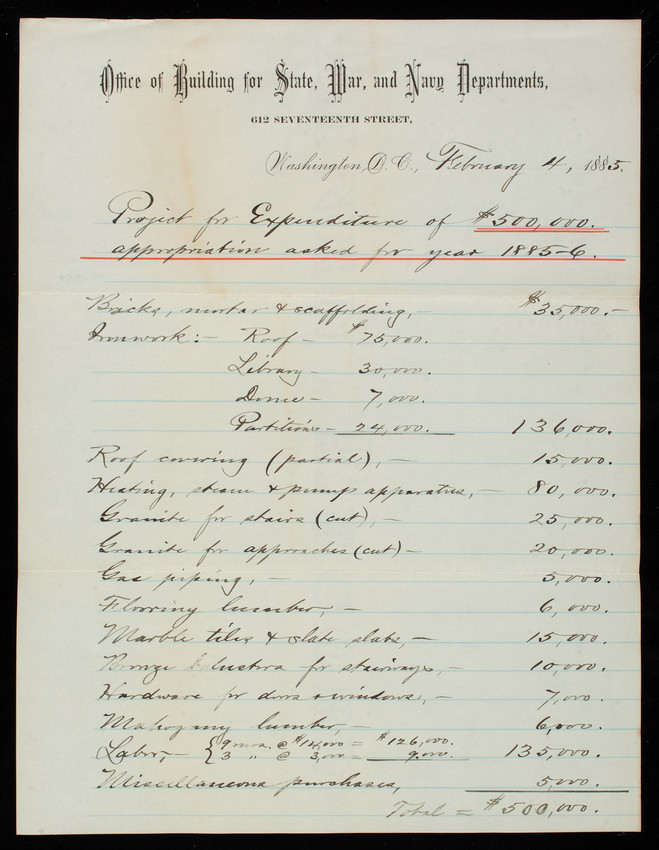 Office of Building for State, War, and Navy Departments,
612 SEVENTEENTH STREET,
Washington, D.C., February 4, 1885.
Project for Expenditure of $500,000.
appropriation asked for year 1885-6.
Bricks, mortar & scaffolding, – $35,000.–
Ironwork:– Roof – $75,000.
Library – 30,000.
Dome – 7,000.
Partitions – 24,000. 136,000.
Roof covering (partial), – 15,000.
Heating, steam & pump apparatus, – 80,000.
Granite for stairs (cut), – 25,000.
Granite for approaches (cut) – 20,000.
Gas piping, – 5,000.
Flooring lumber, – 6,000.
Marble tiles & slate slabs, – 15,000.
Bronze balusters for stairways, – 10,000.
Hardware for doors & windows, – 7,000.
Mahogany lumber, – 6,000.
Labor, – { 9 mos. @ $14,000 = $126,000.
3 " @ 3,000 = 9,000. 135,000.
Miscellaneous purchases, 5,000.
Total = $500,000.